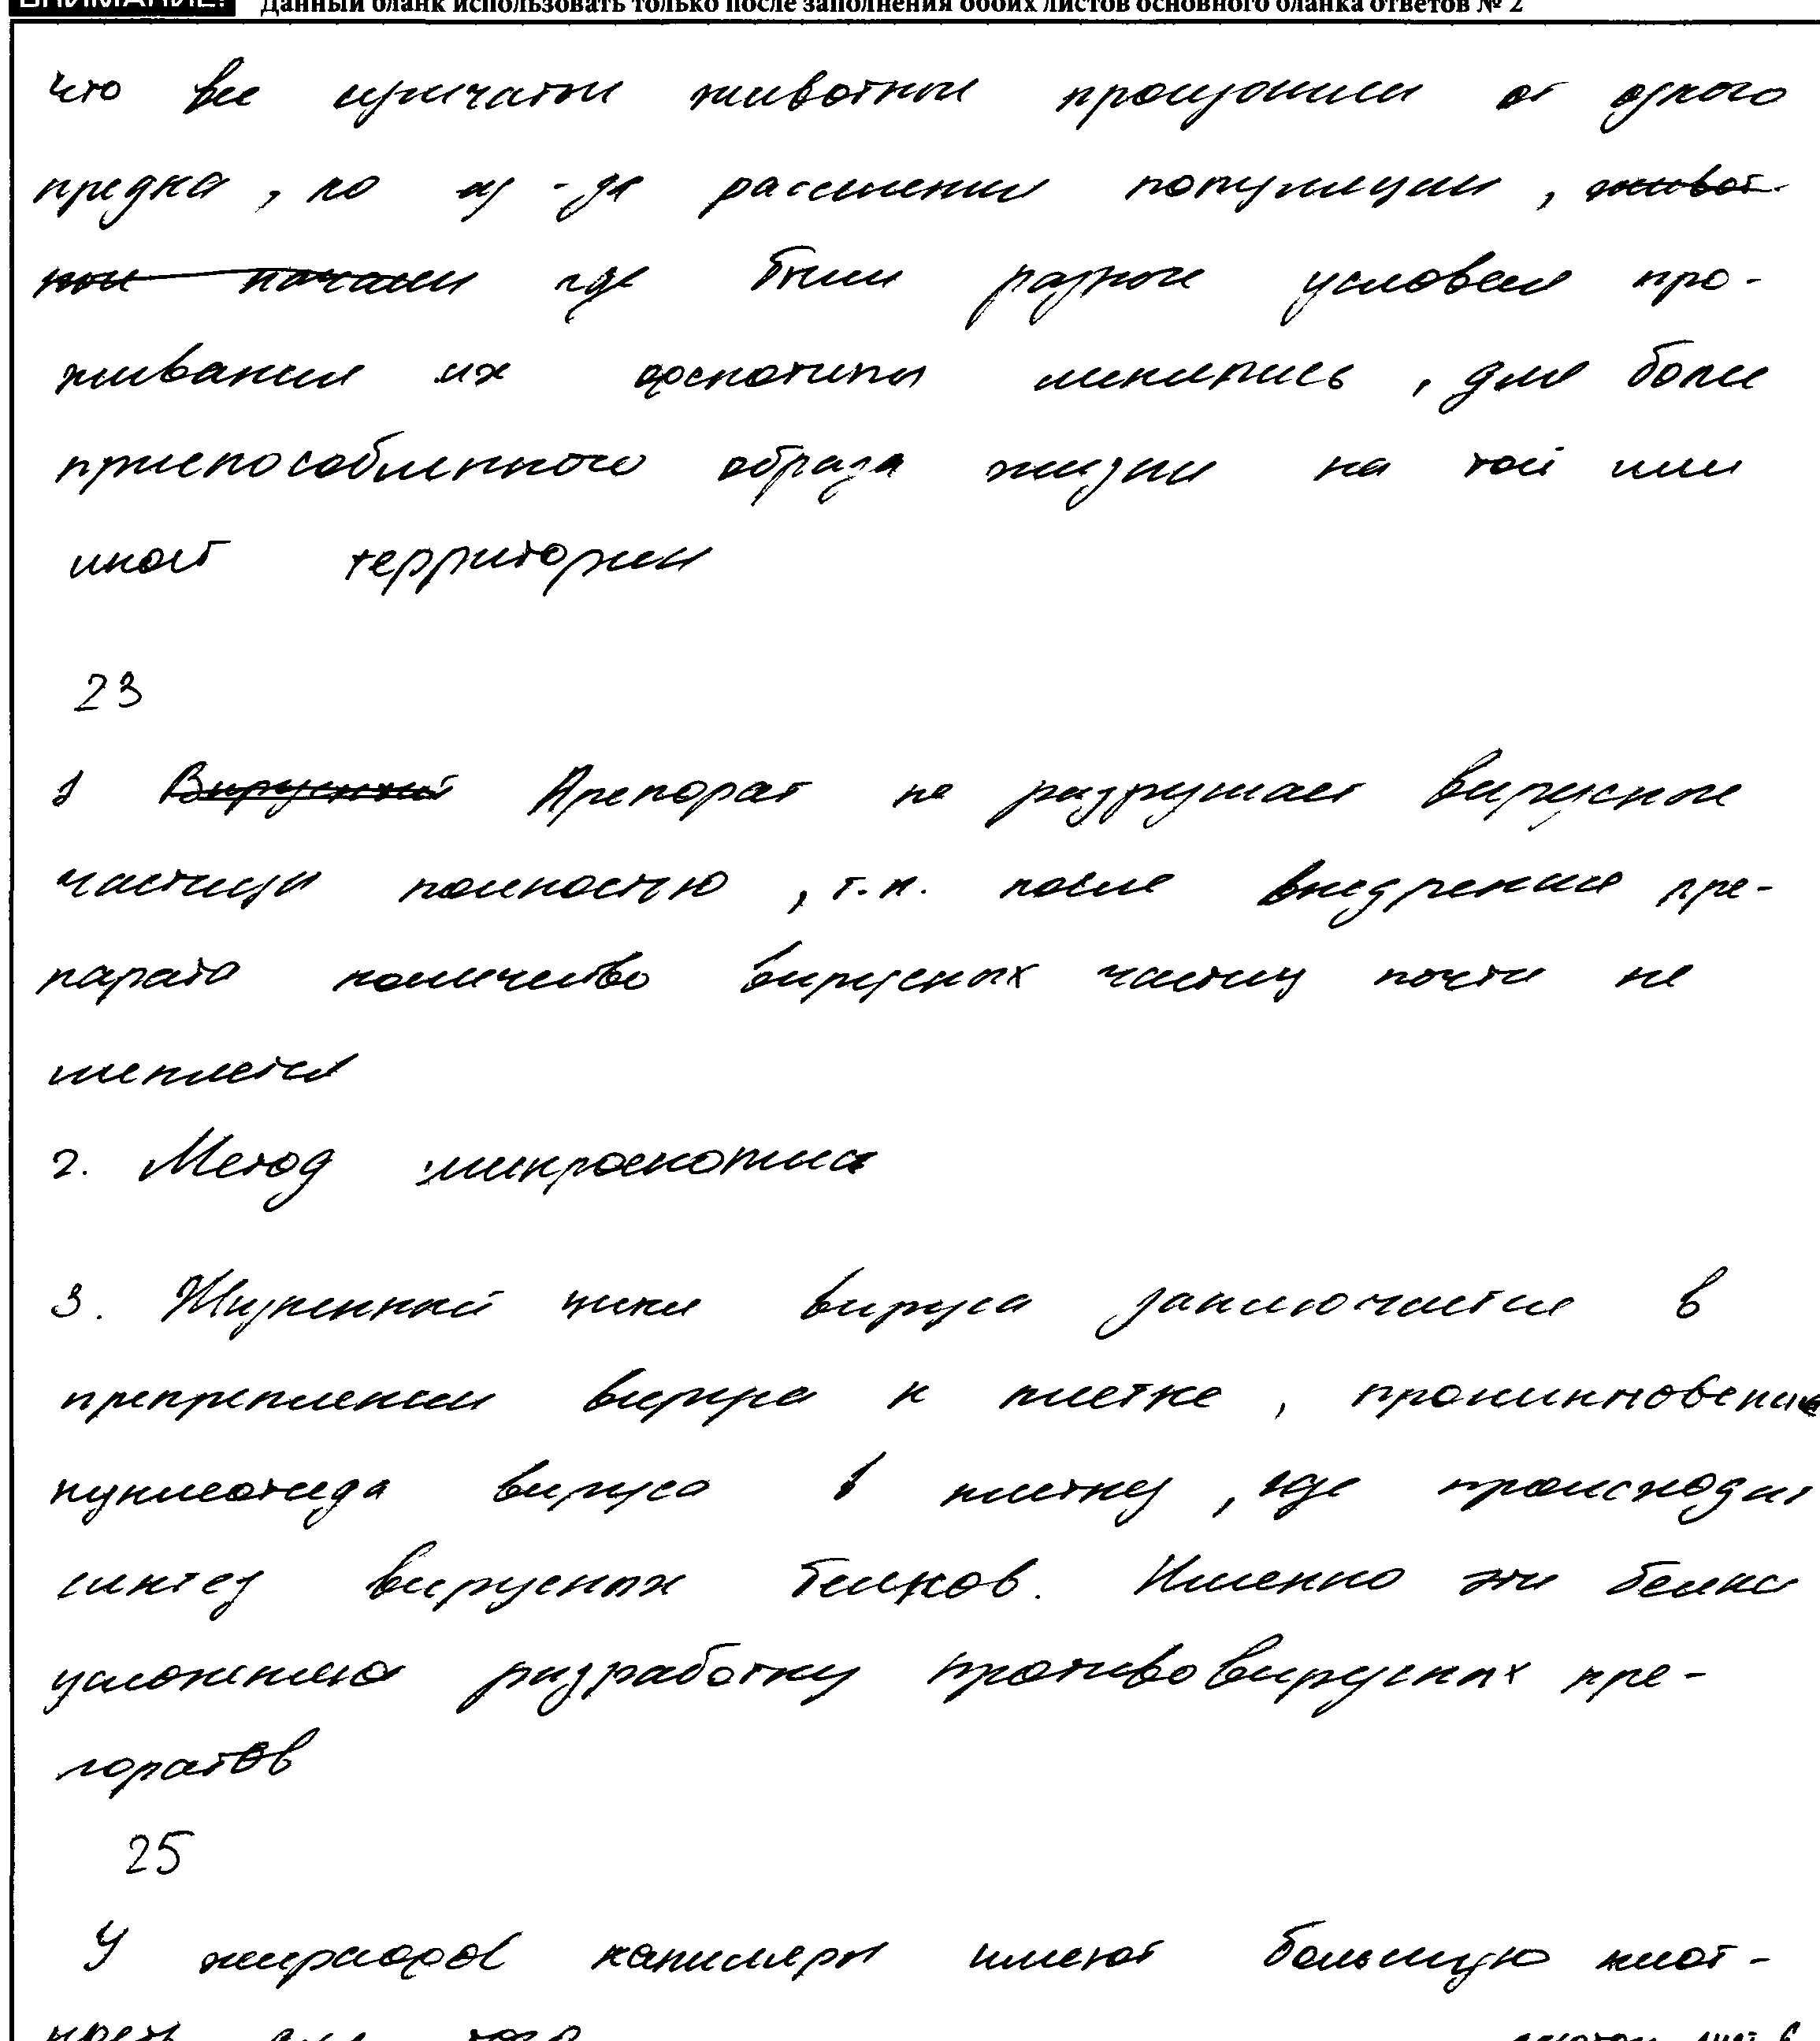 ВНИМАНИЕ! Данный бланк использовать только после заполнения обоих листов основного бланка ответов № 2
что все животные произошли от одного
предка, но из-за расселения популяции, живот-
ные начали где были разные условия про-
живания их фенотипы менялись, для более
приспособленного образа жизни на той или
иной территории
23
1 Вирусный Препорат не разрушает вирусные
частицы полностью, т.к. после внедрения пре-
парата количество вирусных частиц почти не
меняется
2. Метод микроскопия
3. Жизненный цикл вируса заключается в
прекреплении вируса к клетке, проникновение
нуклеотида вируса в клетку, где происходит
синтез вирусных белков. Именно эти белки
разработку противовирусных пре-
поратов
25
У жирафов капилляры имеют большую плот-